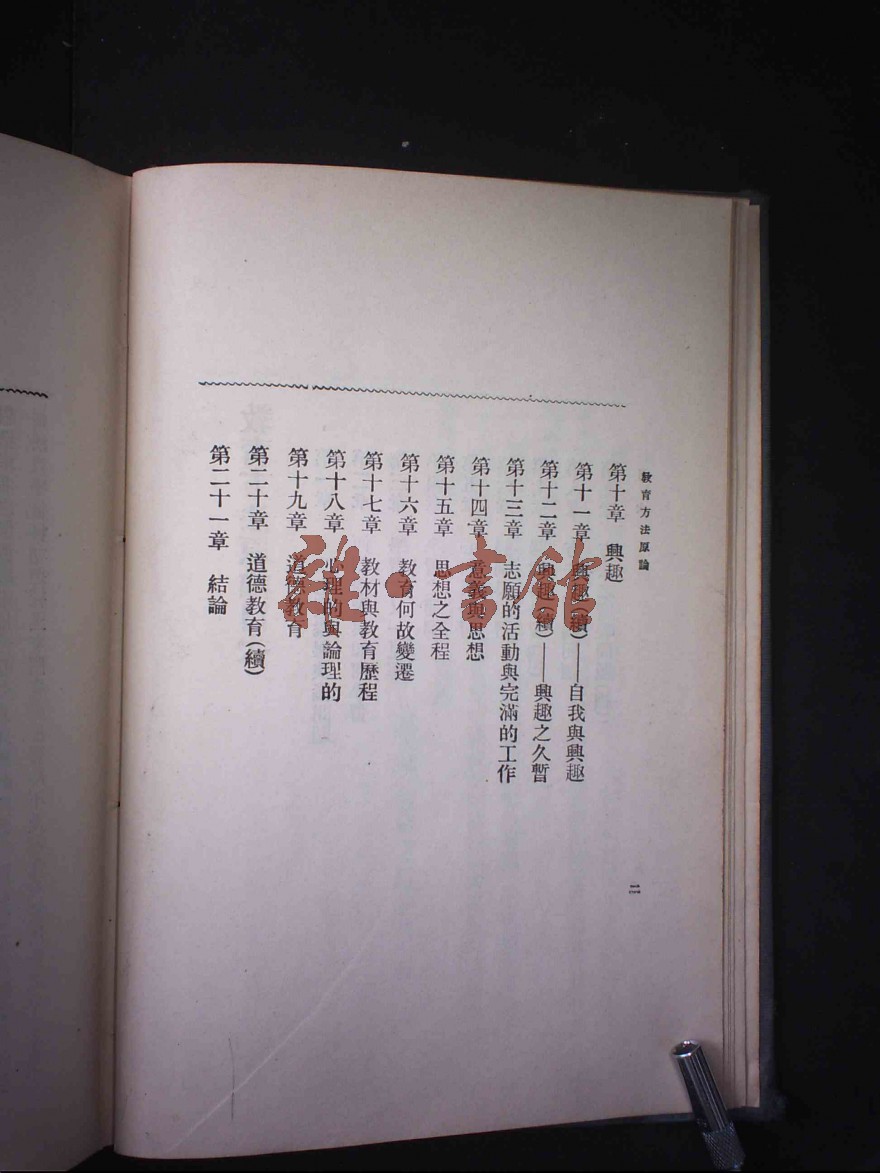 教育方法原論
第十章　興趣
第十一章　興趣(續)——自我與興趣
第十二章　興趣(續)——興趣之久暫
第十三章　志願的活動與完滿的工作
第十四章　意義與思想
第十五章　思想之全程
第十六章　教育何故變遷
第十七章　教材與教育歷程
第十八章　心理的與論理的
第十九章　道德教育
第二十章　道德教育(續)
第二十一章　結論
二
雅·書館